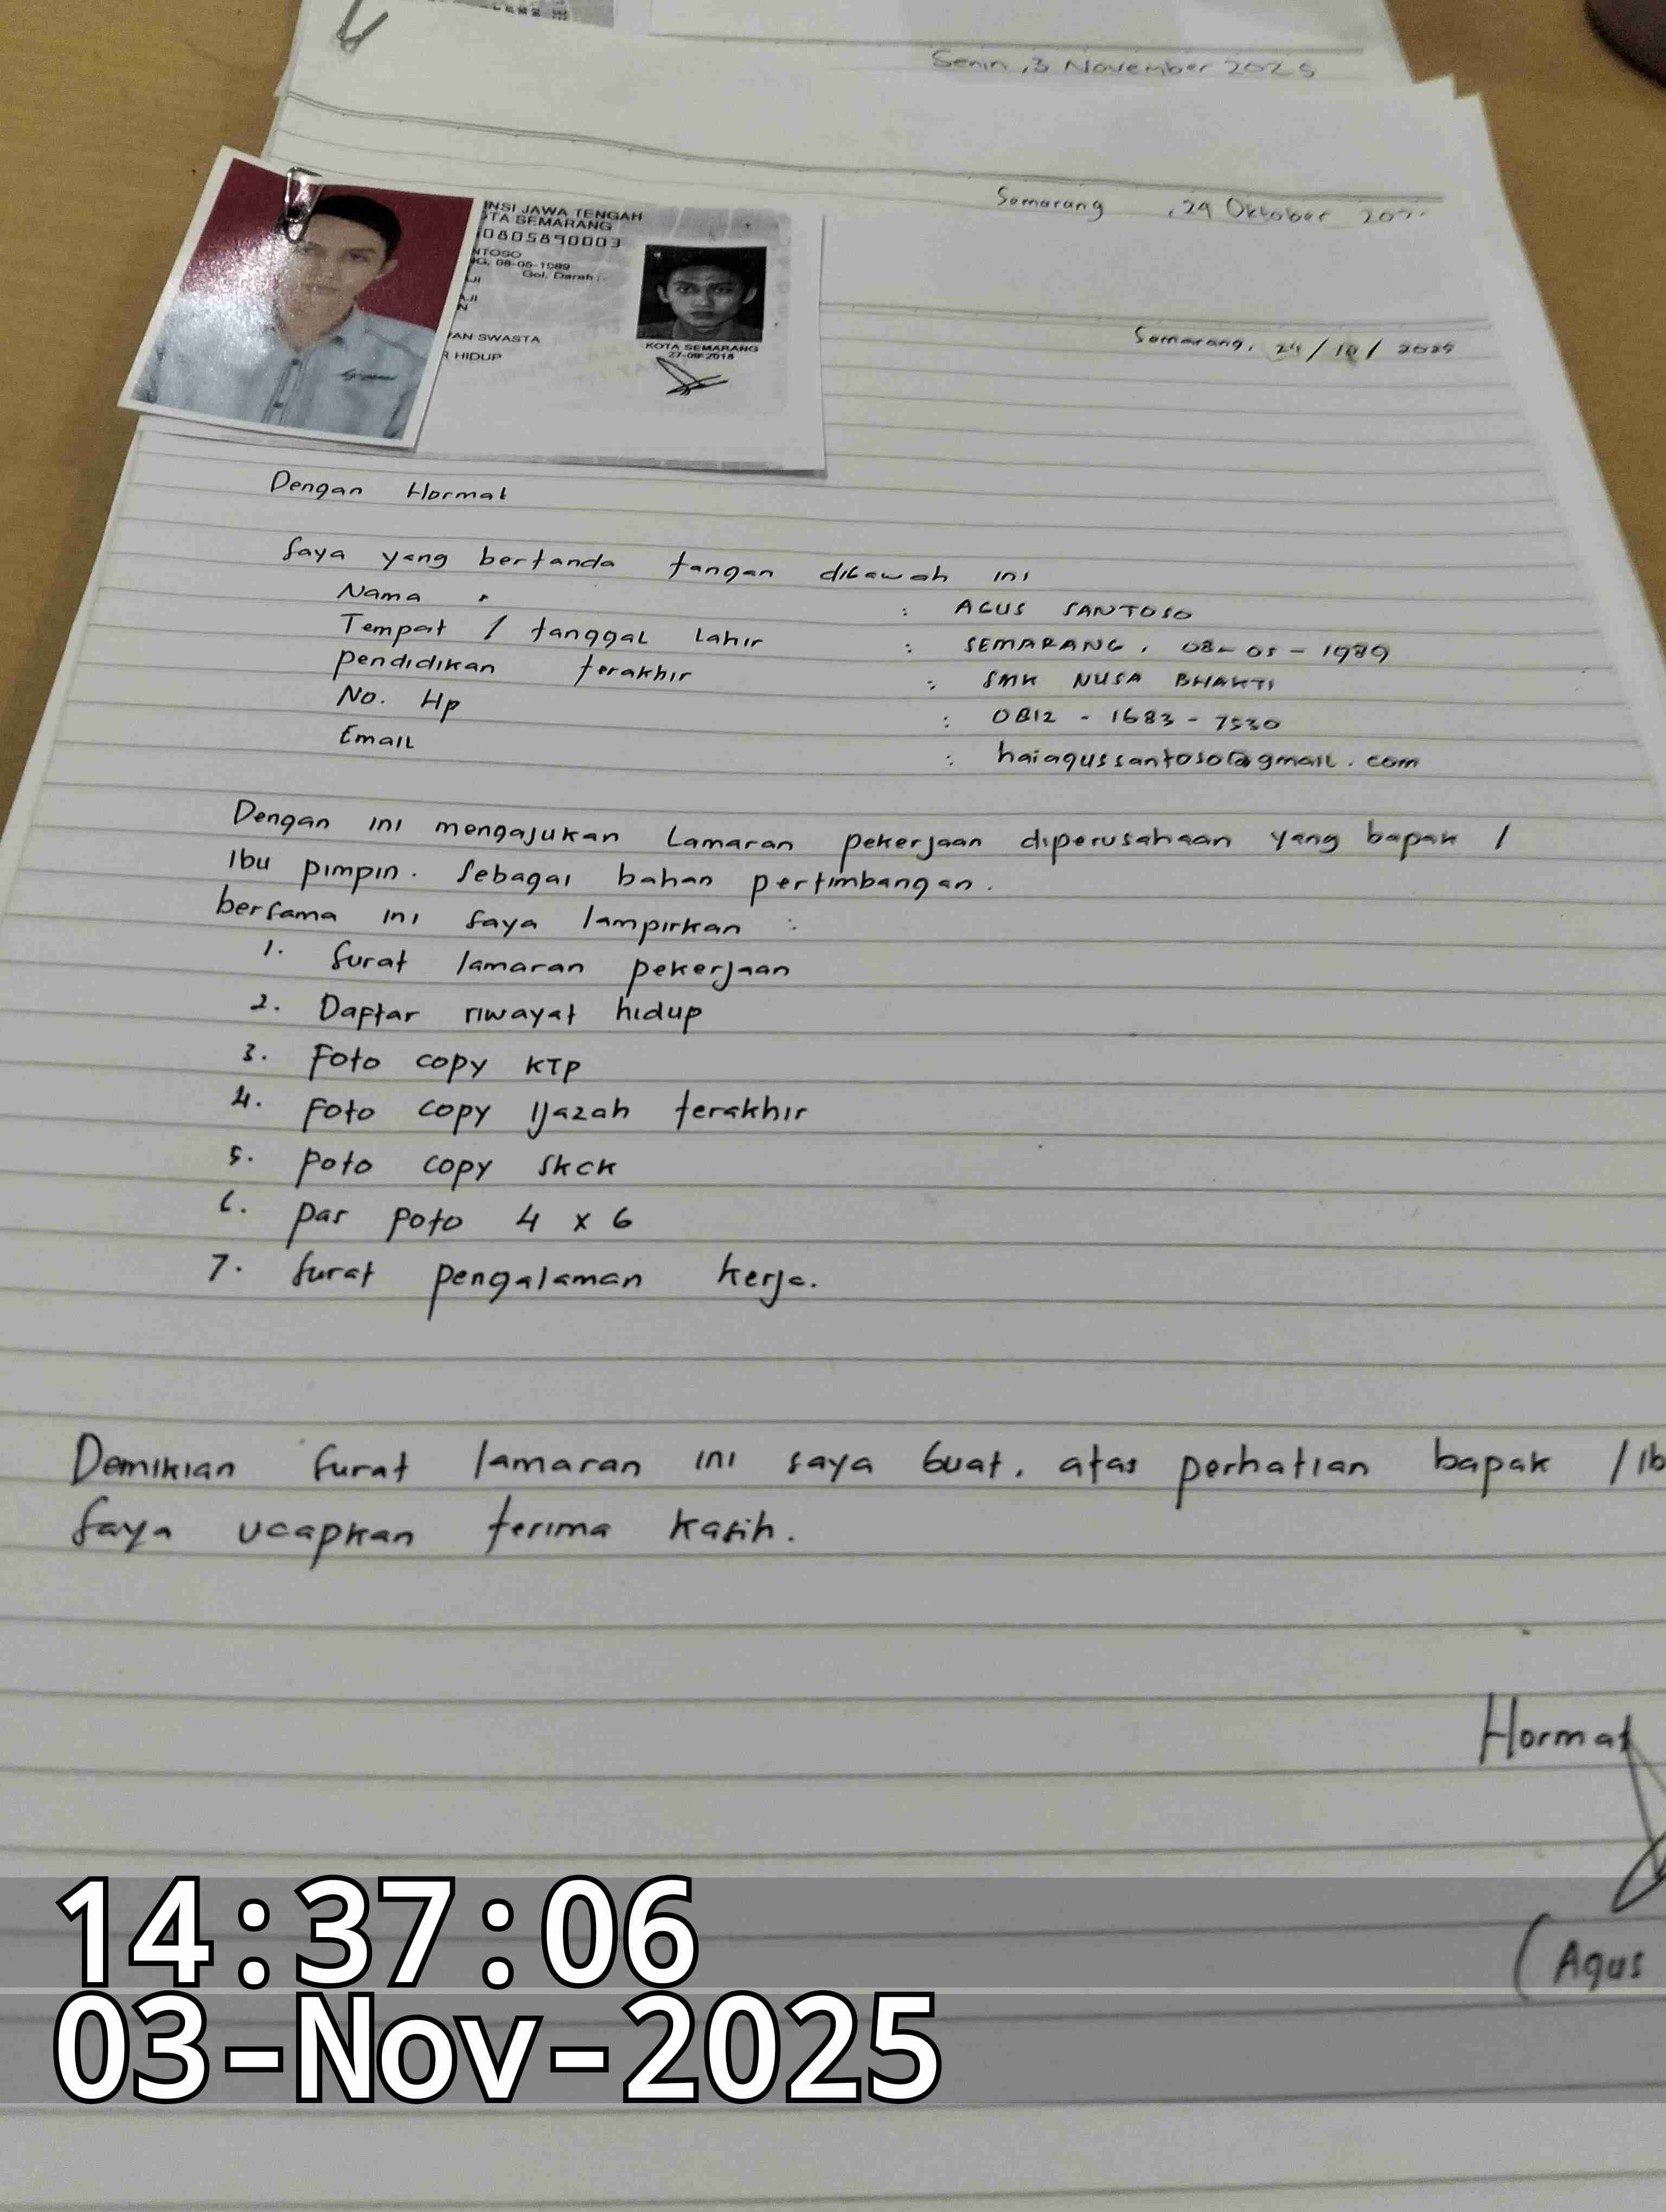 Senin, 3 November 2025
Semarang, 24 Oktober
NSI JAWA TENGAH
TA SEMARANG
0805890003
NTOSO
G, 08-05-1989
Gol. Darah :-
AN SWASTA
HIDUP
KOTA SEMARANG
27-09-2018
Semarang, 24/10/2025
Dengan Hormat
Saya yang bertanda tangan dibawah ini
Nama : AGUS SANTOSO
Tempat / tanggal Lahir : SEMARANG, 08-05-1989
pendidikan terakhir : SMK NUSA BHAKTI
No. Hp : 0812 - 1683 - 7530
Email : haiagussantoso@gmail.com
Dengan ini mengajukan Lamaran pekerjaan diperusahaan yang bapak /
Ibu pimpin. Sebagai bahan pertimbangan.
bersama ini saya lampirkan :
1. Surat lamaran pekerjaan
2. Daftar riwayat hidup
3. Foto copy KTP
4. Foto copy Ijazah terakhir
5. poto copy SKCK
6. pas poto 4 x 6
7. Surat pengalaman kerja.
Demikian Surat lamaran ini saya buat. atas perhatian bapak / Ib
Saya ucapkan terima kasih.
Hormat
(Agus
14:37:06
03-Nov-2025